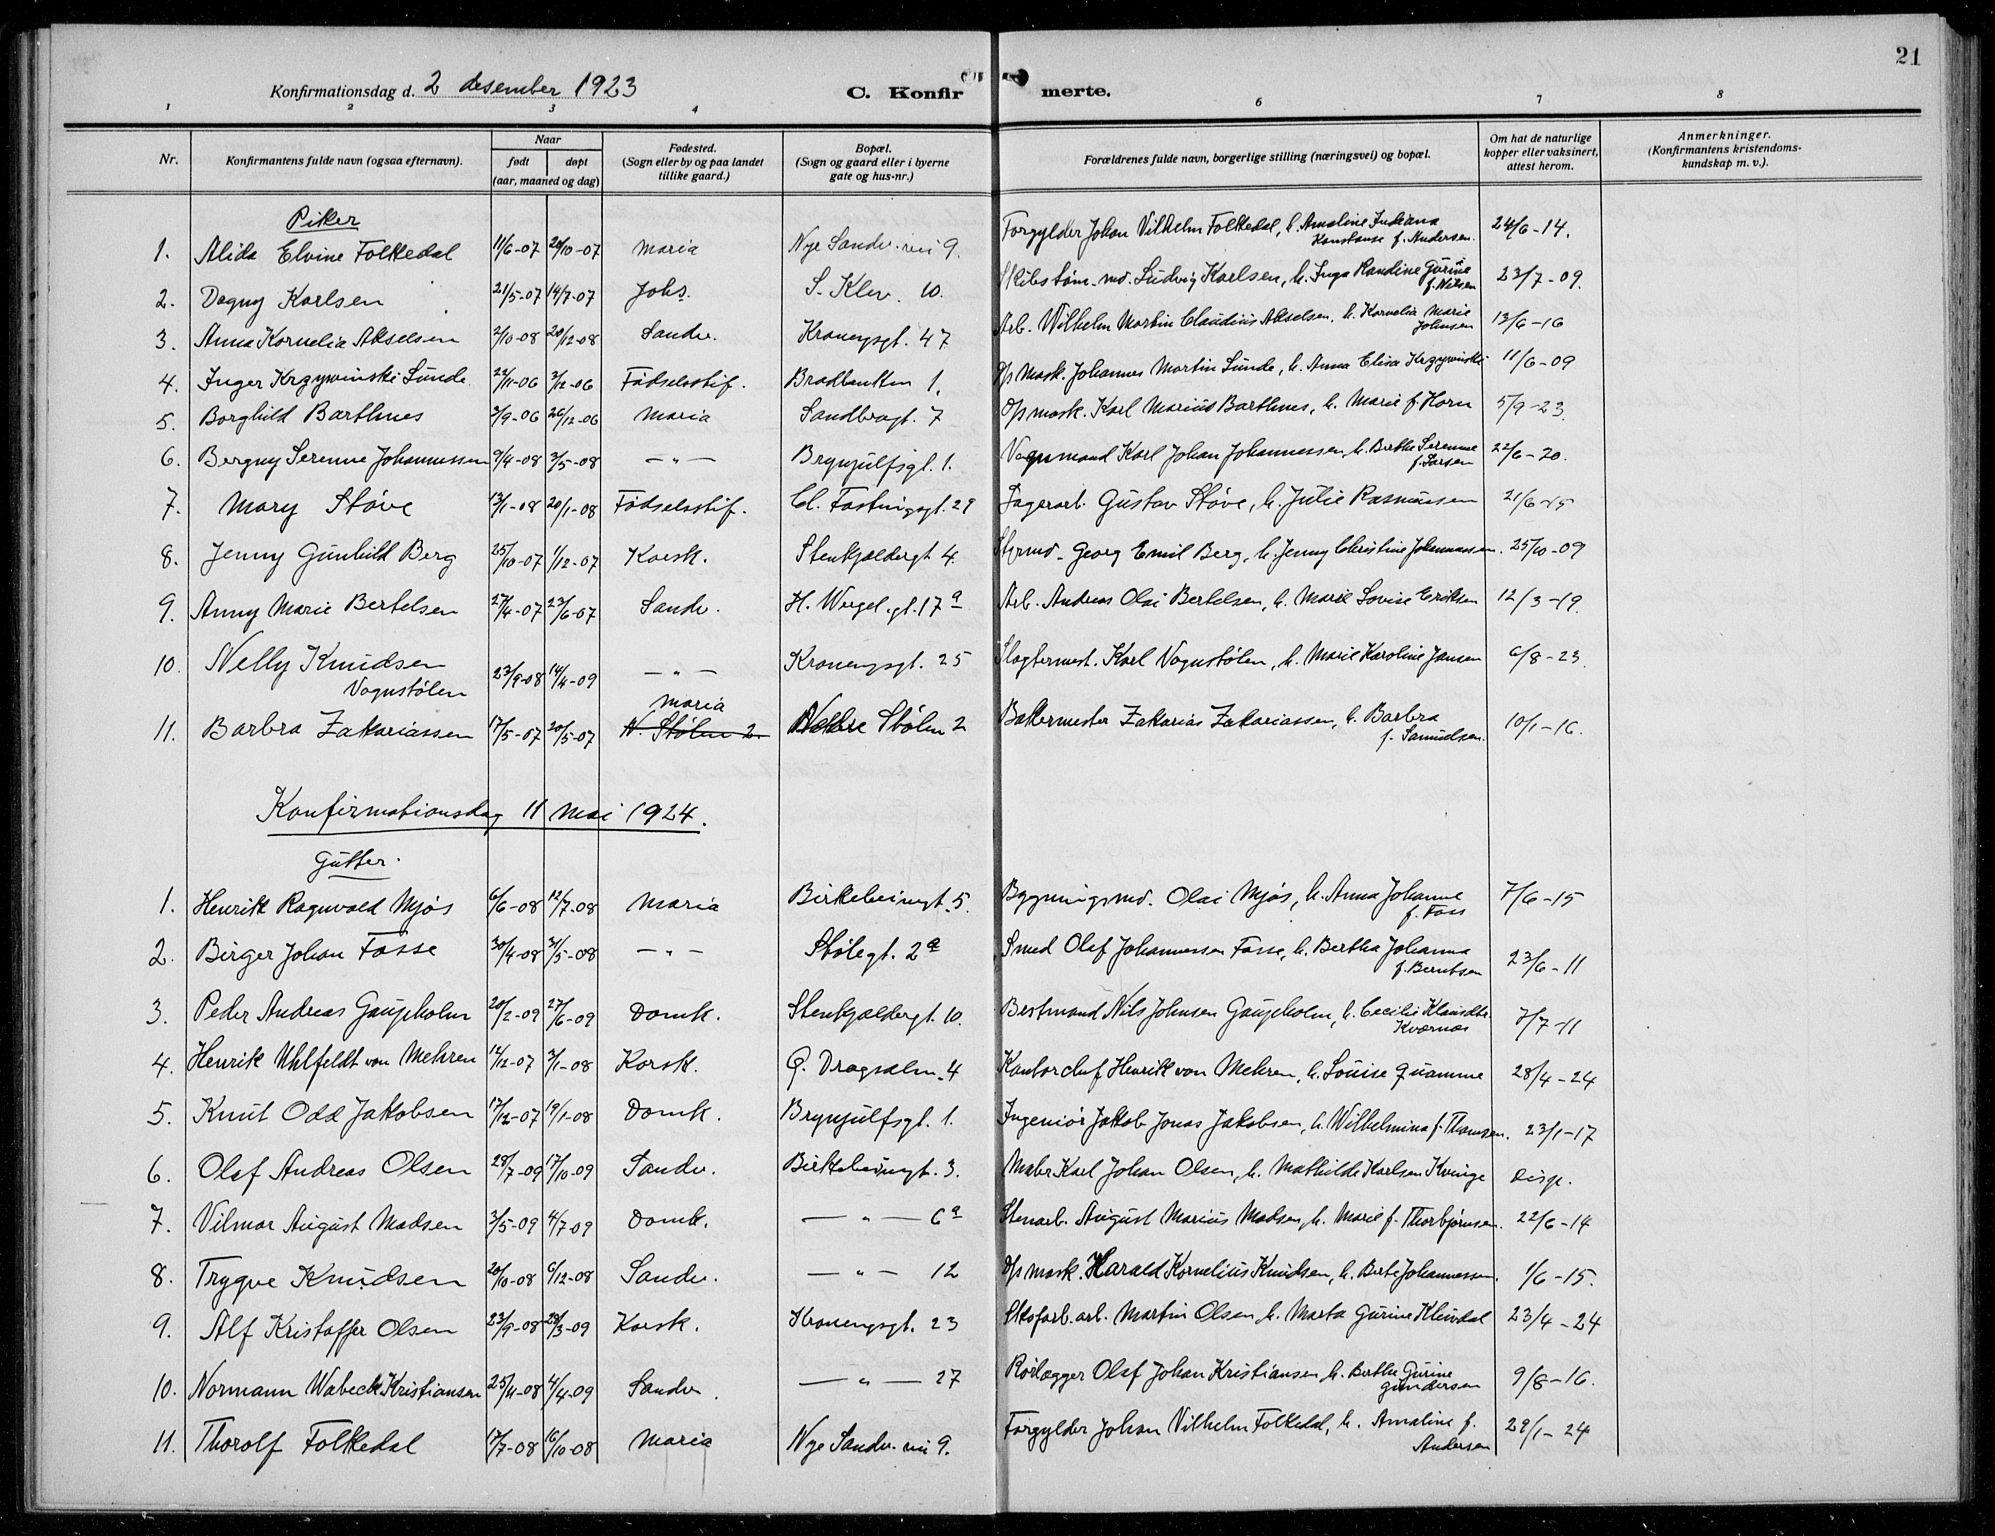 21
Konfirmationsdag d. 2 desember 1923 C. Konfirmerte.
1 2 3 4 6 7 8
Nr. Konfirmantens fulde navn (ogsaa efternavn). Naar født døpt (aar, maaned og dag) Fødested. (Sogn eller by og paa landet tillike gaard.) Bopæl. (Sogn og gaard eller i byerne gate og hus-nr.) Forældrenes fulde navn, borgerlige stilling (næringsvei) og bopæl. Om hat de naturlige kopper eller vaksinert, attest herom. Anmerkninger. (Konfirmantens kristendoms-kundskap m. v.).
Piker
1. Alida Elvine Folkedal 11/6-07 20/10-07 Maria Nye Sandv. vei 9. Forgylder Johan Vilhelm Folkedal, h. Amaline Indiana Konstanse f. Andersen. 24/6-14.
2. Dagny Karlsen 21/5-07 14/7-07 Johs. S. Klev. 10. Skibstøm. md. Ludvig Karlsen, h. Inga Randine Gurine f. Nilsen 23/7-09.
3. Anna Kornelia Akselsen 2/10-08 20/12-08 Sandv. Kronengsgt. 47 Arb. Wilhelm Martin Claudius Akselsen, h. Kornelia Marie Johnsen 13/6-16
4. Inger Krzywinski Sunde 22/11-06 3/12-06 Fødselsstif. Bradbenken 1. Op. mask. Johannes Martin Sunde, h. Anna Elisa Krzywinski 11/6-09
5. Borghild Barthnes 3/9-06 26/12-06 Maria Sandbrogt. 7 Op mask. Karl Marius Barthnes, h. Marie f. Horn 5/9-23.
6. Bergny Serenne Johannessen 9/4-08 3/5-08 — " — Brynjulfsgt. 1. Vognmand Karl Johan Johannessen, h. Berthe Serenne f. Larsen 22/6-20.
7. Mary Støve 13/1-08 20/1-08 Fødselsstif. Cl. Fastingsgt. 29 Lagerarb. Gustav Støve, h. Julie Rasmussen 21/6-15
8. Jenny Gunhild Berg 25/10-07 1/12-07 Korsk. Stenkjeldergt 4. Styrmd. Georg Emil Berg, h. Jenny Christine Johannessen. 25/10-09
9. Anny Marie Bertelsen 27/4-07 23/6-07 Sandv. H. Wergel. gt. 17 a Arb. Andreas Olai Bertelsen, h. Marie Lovise Eriksen 12/3-19.
10. Nelly Knudsen Vognstølen 23/9-08 14/4-09 — " — Kronengsgt. 25 Slagtermest. Karl Vognstølen, h. Marie Karoline Jansen 6/8-23.
11. Barbra Zakariassen 17/5-07 20/5-07 Maria N. Stølen 2. Nedre Stølen 2 Bakermester Zakarias Zakariassen, h. Barbra f. Samuelsen. 10/1-16.
Konfirmationsdag 11 mai 1924.
Gutter.
1. Henrik Ragnvald Mjøs 6/6-08 12/7-08 Maria Birkebeinegt. 5. Bygningsmd. Olai Mjøs, h. Anna Johanne f. Foss 7/6-15
2. Birger Johan Fosse 30/4-08 31/5-08 — " — Stølegt. 2 a Smed Olaf Johannessen Fosse, h. Bertha Johanna f. Berntsen 23/6-11
3. Peder Andreas Gaupholm 20/2-09 27/6-09 Domk. Stenkjeldergt. 10. Bestmand Nils Johnsen Gaupholm, h. Cecilie Klausdtr. Kvernes 7/7-11
4. Henrik Uhlfeldt von Mehren 12/12-07 3/1-08 Korsk. Q. Dragsalm. 4 Kontorchef Henrik von Mehren, h. Louise Quamme 28/4-24
5. Knut Odd Jakobsen 17/12-07 19/1-08 Domk. Brynjulfsgt. 1. Ingeniør Jakob Jonas Jakobsen, h. Wilhelmina f. Thomsen. 23/1-17
6. Olaf Andreas Olsen 28/7-09 17/10-09 Sandv. Birkebeinegt. 3. Maler Karl Johan Olsen, h. Mathilde Karlsen Kvinge Disp.
7. Vilmar August Madsen 3/5-09 4/7-09 Domk. — " — 6 a Stenarb. August Marius Madsen, h. Marie f. Thorbjørnsen. 22/6-14
8. Trygve Knudsen 20/10-08 6/12-08 Sandv. — " — 12 Op mask. Harald Kornelius Knudsen, h. Berte Johannessen. 1/6-15.
9. Alf Kristoffer Olsen 23/9-08 28/3-09 Korsk. Kronengsgt. 23 Skofarb. arb. Martin Olsen h. Marta Gurine Kleivdal 23/4-24
10. Normann Wabeck Kristiansen 25/4-08 4/4-09 Sandv. — " — 27 Rørlægger Olaf Johan Kristiansen h. Berthe Gurine Gundersen 9/8-16.
11. Thorolf Folkedal 17/7-08 16/10-08 Maria Nye Sandv. vei 9. Forgylder Johan Vilhelm Folkedal, h. Amaline f. Andersen 29/1-24